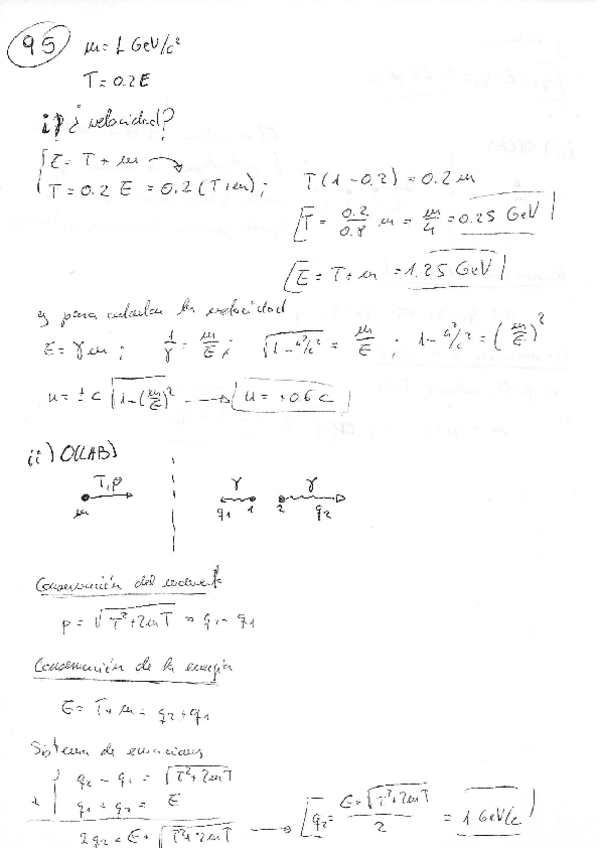 95
m = 1 GeV/c²
T = 0.2E
i) ¿velocidad?
E = T + m
T = 0.2 E = 0.2 (T+m) ; T(1-0.2) = 0.2 m
T = 0.2/0.8 m = m/4 = 0.25 GeV
E = T + m = 1.25 GeV
y para calcular la velocidad
E = γm ; 1/γ = m/E ; √(1-u²/c²) = m/E ; 1-u²/c² = (m/E)²
u = ± c √(1-(m/E)²) ---→ u = +0.6 c
ii) O(LAB)
T, p γ γ
m q₁ 1 2 q₂
Conservación del moment
p = √(T²+2mT) = q₂ - q₁
Conservación de la energía
E = T + m = q₂ + q₁
Sistema de ecuaciones
q₂ - q₁ = √(T²+2mT)
+ q₁ + q₂ = E
2q₂ = E + √(T²+2mT) ---→ q₂ = (E+√(T²+2mT))/2 = 1 GeV/c